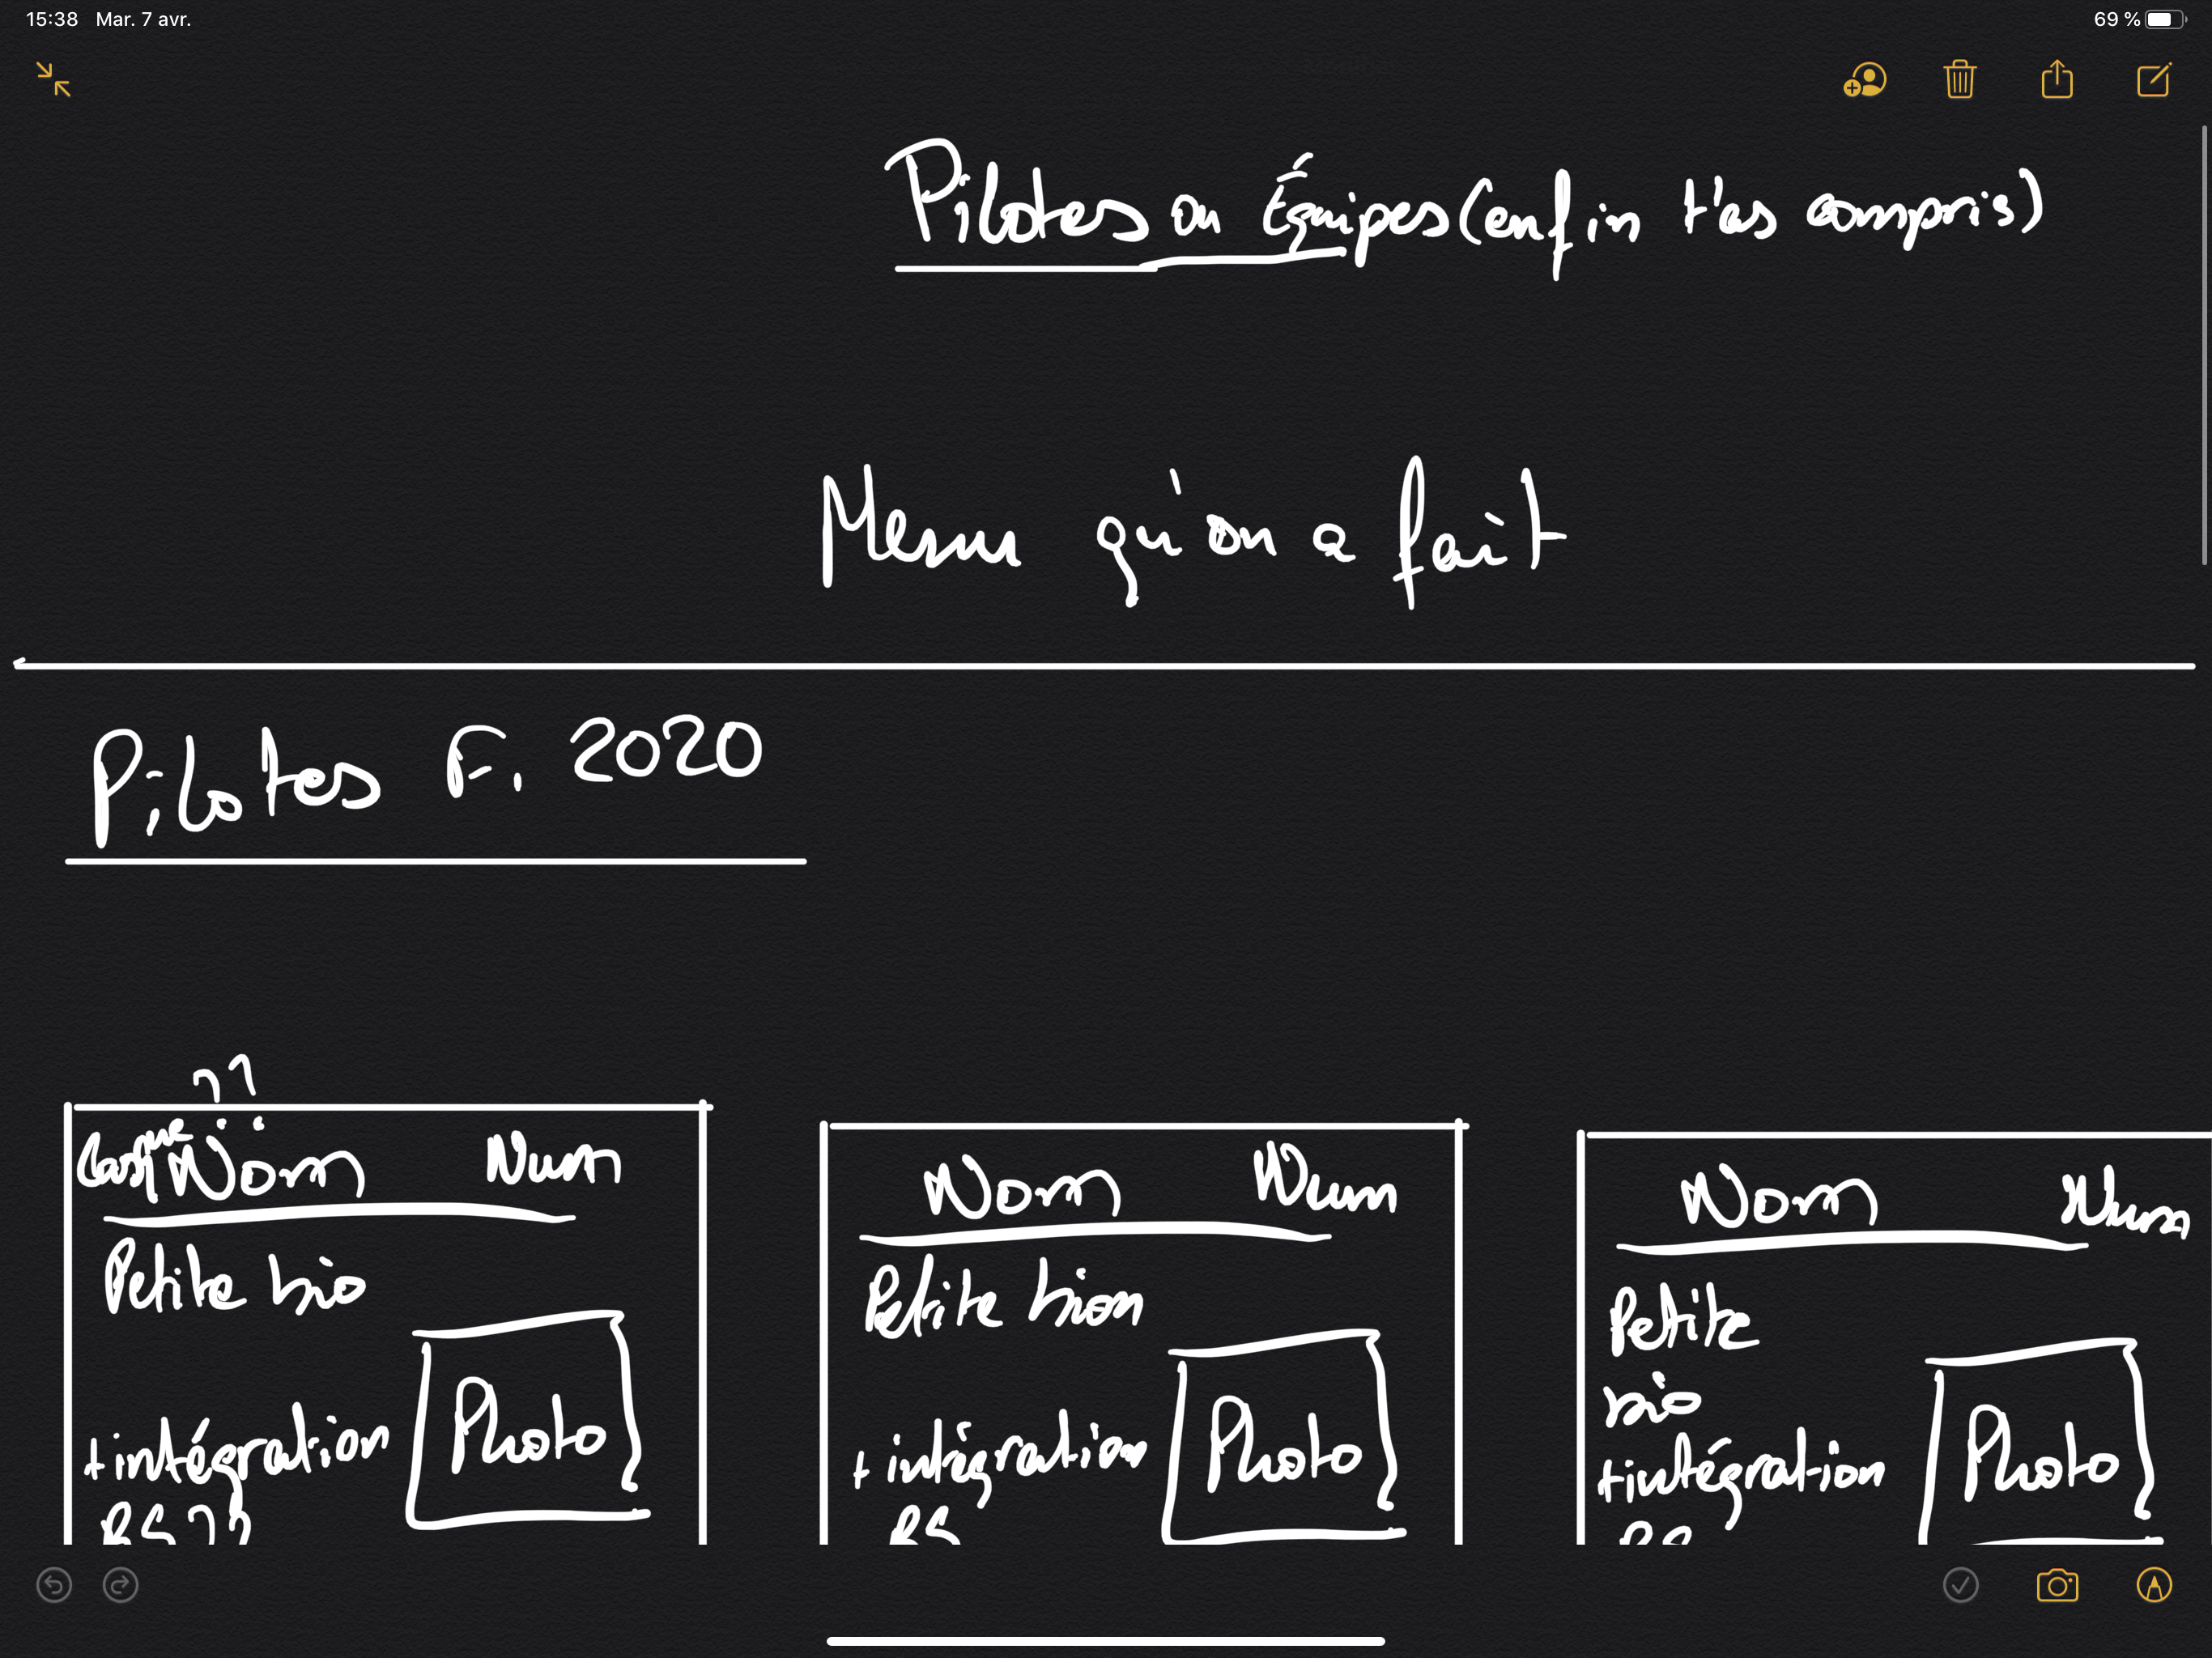 15:38 Mar. 7 avr.
69 %
Pilotes ou Équipes (enfin t'as compris)
Menu qu'on a fait
Pilotes F1 2020
??
Casque Nom Num
Petite bio
+ intégration
RS ??
Photo
Nom Num
Petite bion
+ intégration
RS
Photo
Nom Num
Petite
bio
+ intégration
RS
Photo